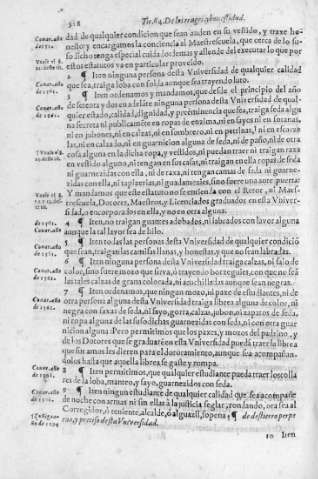 318 Tit. 64. De los trages, y honestidad.
dad de qualquier condicion que sean anden en su vestido, y traxe ho-
nesto y encargamos la conciencia al Maestrescuela, que cerca de lo su
so dicho tenga especial cuidado: demas y allende del executar lo que por
estos estatutos va en particular proueido.
2 ¶ Iten ninguna persona desta Vniuersidad de qualquier calidad
que sea, traiga loba con falda aunque sea trayendo luto.
3 ¶ Iten ordenamos y mandamos, que desde el principio del año
de setenta y dos en adelante ninguna persona desta Vniuersidad de qual-
quier estado, calidad, dignidad, y preeminencia que sea, traiga seda algu
na secreta ni publicamente en ropas de encima, ni en sayos ni en sotanas,
ni en jubones, ni en calzas, ni en sombreros, ni en petrinas, ni en escarce
las, ni en calzado, ni en guarnicion alguna de seda, ni de paño, ni de otra
cosa alguna en la dicha ropa, y vestidos, ni puedan traer ni traigan raxa
en vestido alguno, ni tengan en sus casas, ni traigan en ella ropas de seda
ni guarnecidas con ella, ni de raxa, ni tengan camas de seda ni guarne-
cidas con ella, ni tapicerias, ni guadameciles, sino fuere vno ante puerta:
Y mandamos que este estatuto no se entienda con el Retor, ni Maes-
trescuela, Doctores, Maestros, y Licenciados graduados en esta Vniuer-
sidad, o encorporados en ella, y no en otra alguna.
4 ¶ Iten, no traigan guantes adobados, ni labrados con lauor alguna
aunque la tal lauor sea de hilo.
5 ¶ Iten todas las personas desta Vniuersidad de qualquier condició
que sean, traigan las camisas llanas, y honestas, y que no sean labradas.
6 ¶ Iten ninguna persona desta Vniuersidad traiga calzas, ni sayo de
color, sino fuere mozo que sirua, o trayendo borzeguies, con que no seã
las tales calzas de grana colorada, ni acuchilladas aunque sea lana.
7 ¶ Iten ordenamos, que ningun mozo, ni paxe de estudiantes, ni de
otra persona alguna desta Vniuersidad traiga librea alguna de color, ni
negra con faxas de seda, ni sayo, gorra, calzas, jubon, ni zapatos de seda,
ni ropa alguna de las susodichas guarnecidas con seda, ni con otra guar
nicion alguna: Pero permitimos que los paxes, y mozos del padrino, y
de los Doctores que se graduaren en esta Vniuersidad pueda traer la librea
que sus amos les dieren para el doctoramiento, aunque sea acompañan-
dolos hasta que aquella librea se gaste y rompa.
8 ¶ Iten permitimos, que qualquier estudiante pueda traer los tolla
res de la loba, manteo, y sayo, guarnecidos con seda.
9 ¶ Iten ningun estudiante de qualquier calidad que sea acompañe
de noche con armas ni sin ellas a la justicia seglar, rondando, ora sea al
Corregidor, o teniente, alcalde, o alguazil, so pena, ¶ de destierro perpe
tuo, y preciso desta Vniuersidad.
10 Iten